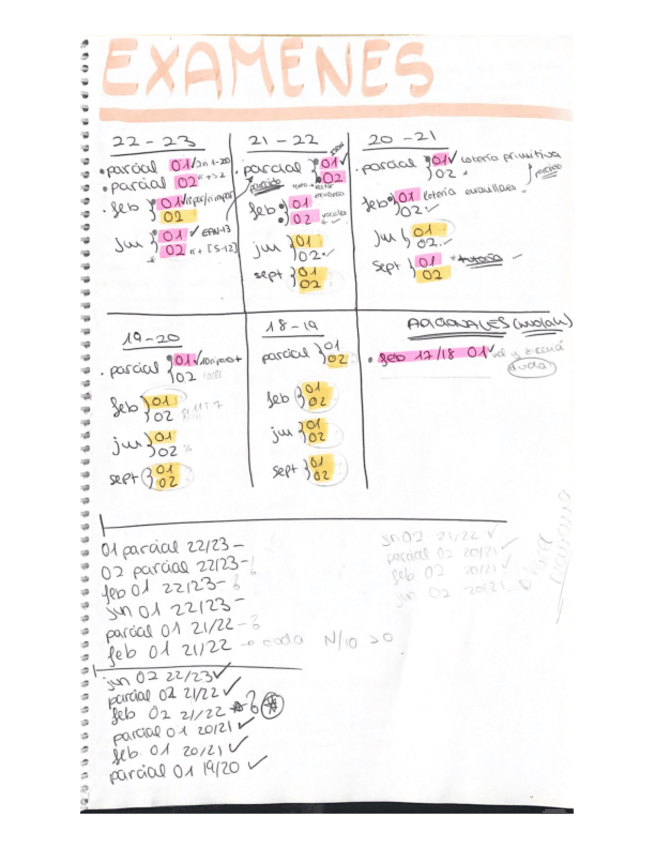 EXAMENES
22-23
• parcial 01
• parcial 02
• feb 01
02
jun 01 ✓ EAN-13
02
21-22
• parcial 01 ✓
02
parecido
feb 01
02 vocales
jun 01
02 ✓
sept 01
02
20-21
• parcial 01 ✓ lotería primitiva
02
parecido
feb 01 lotería
02 ✓
jun 01
02 ✓
sept 01
02
19-20
• parcial 01 ✓
02
feb 01
02
jun 01
02
sept 01
02
18-19
parcial 01
02
feb 01
02
jun 01
02
sept 01
02
ADICIONALES
• feb 17/18 01 ✓
duda
01 parcial 22/23 -
02 parcial 22/23 - ?
feb 01 22/23 - ?
jun 01 22/23 -
parcial 01 21/22 - ?
feb 01 21/22 → N/10 >0
jun 02 21/22 ✓
parcial 02 20/21 ✓
feb 02 20/21 ✓
jun 02 20/21
jun 02 22/23 ✓
parcial 02 21/22 ✓
feb 02 21/22
parcial 01 20/21 ✓
feb 01 20/21 ✓
parcial 01 19/20 ✓